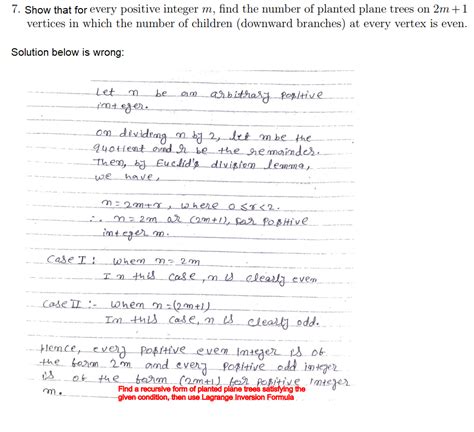 7. Show that for every positive integer m, find the number of planted plane trees on 2m + 1
vertices in which the number of children (downward branches) at every vertex is even.
Solution below is wrong:
Let n be an arbitrary positive
integer.
on dividing n by 2, let m be the
quotient and r be the remainder.
Then, by Euclid's division lemma,
we have,
n = 2m+r, where 0≤r<2.
∴ n = 2m or (2m+1), for positive
integer m.
Case I : when n = 2m
In this case, n is clearly even
Case II :- when n = (2m+1)
In this case, n is clearly odd.
Hence, every positive even integer is of
the form 2m and every positive odd integer
is of the form (2m+1) for positive integer
m.
Find a recursive form of planted plane trees satisfying the
given condition, then use Lagrange Inversion Formula